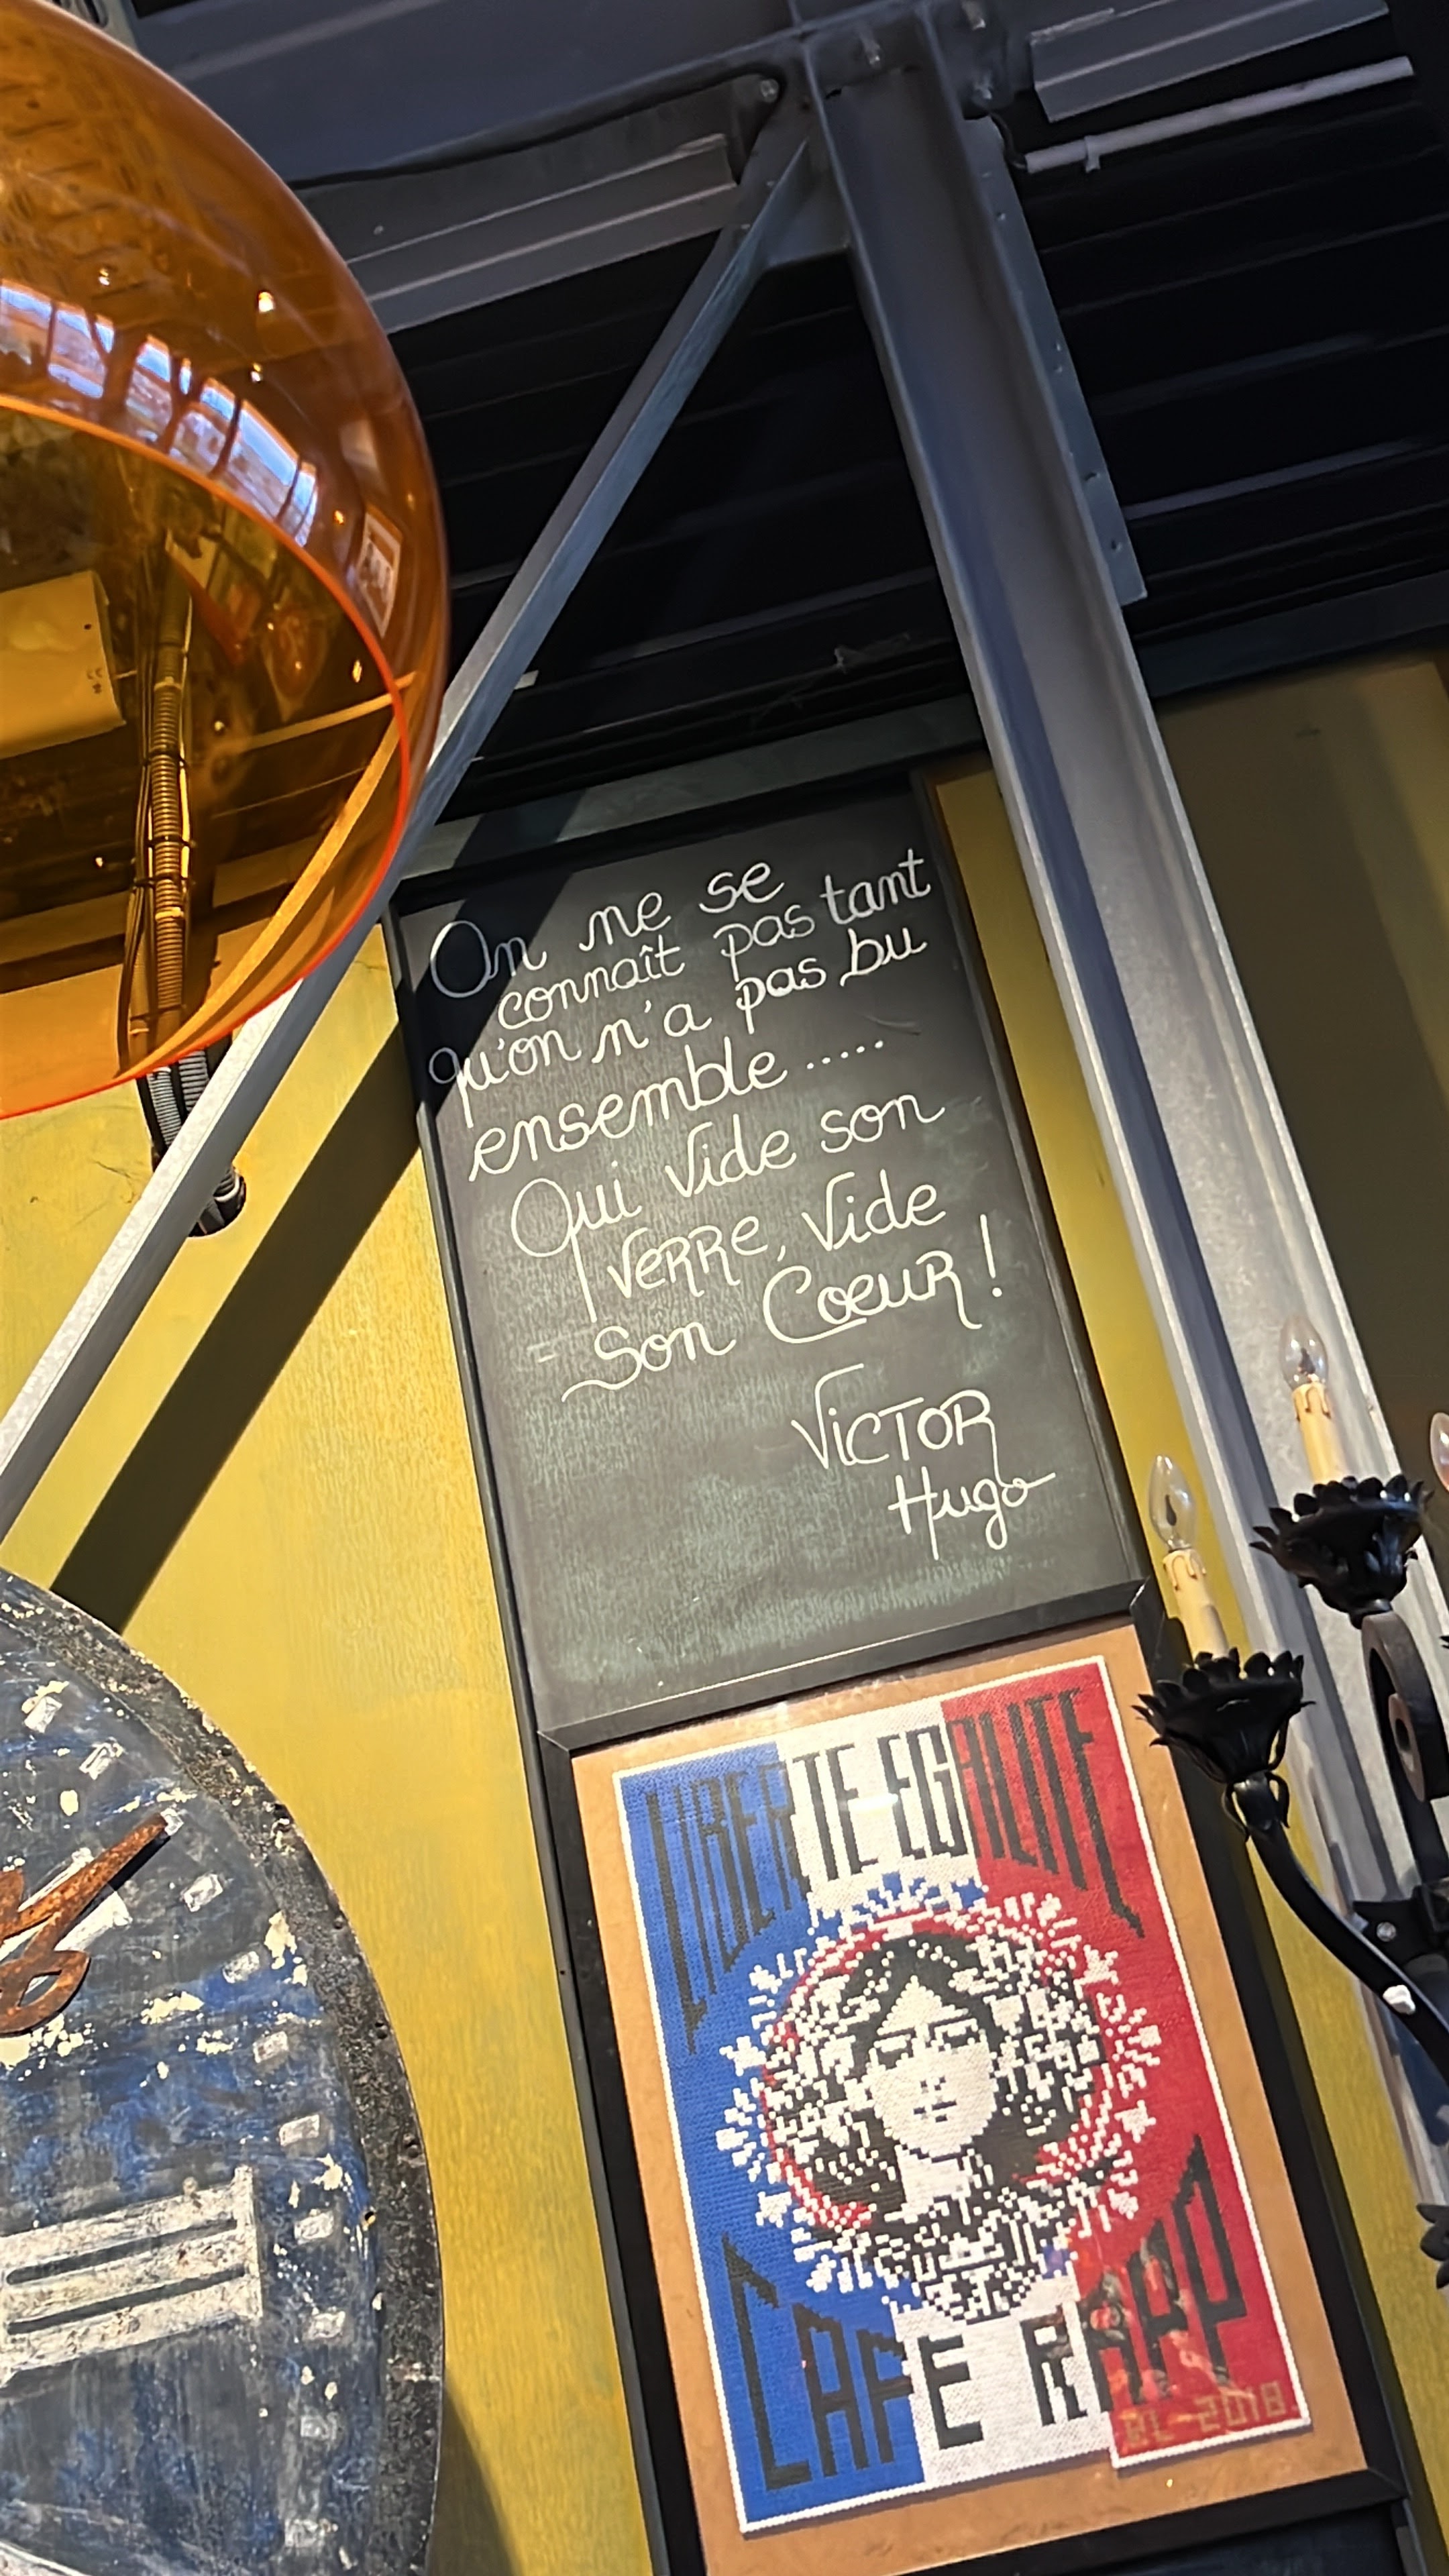 On ne se
connaît pas tant
qu'on n'a pas bu
ensemble.....
Qui vide son
verre, vide
son Coeur !
Victor
Hugo
LIBERTE EGALITE
CAFE RAPP
BL-2018
II